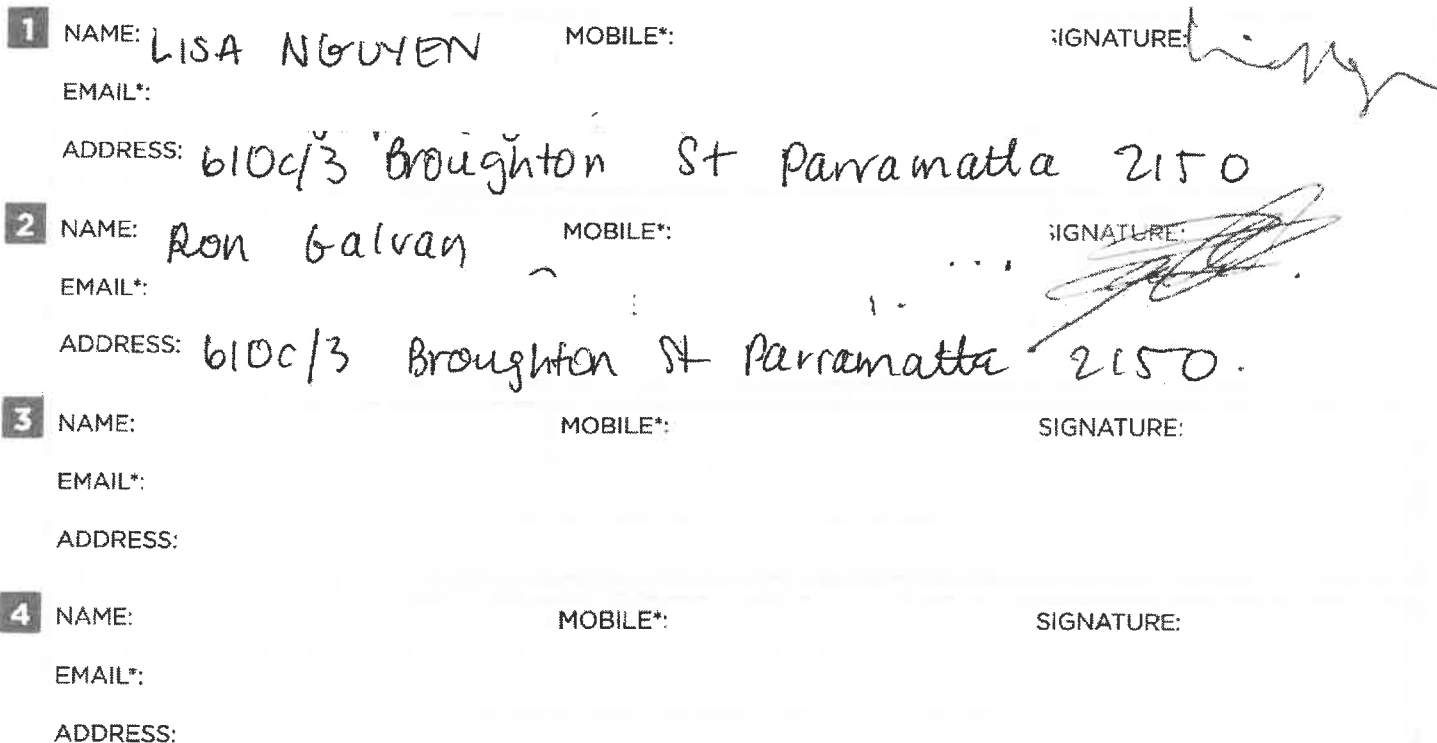 1 NAME: LISA NGUYEN MOBILE*: SIGNATURE:
EMAIL*:
ADDRESS: 610c/3 Broughton St Parramatta 2150
2 NAME: Ron Galvan MOBILE*: SIGNATURE:
EMAIL*:
ADDRESS: 610c/3 Broughton St Parramatta 2150.
3 NAME: MOBILE*: SIGNATURE:
EMAIL*:
ADDRESS:
4 NAME: MOBILE*: SIGNATURE:
EMAIL*:
ADDRESS: